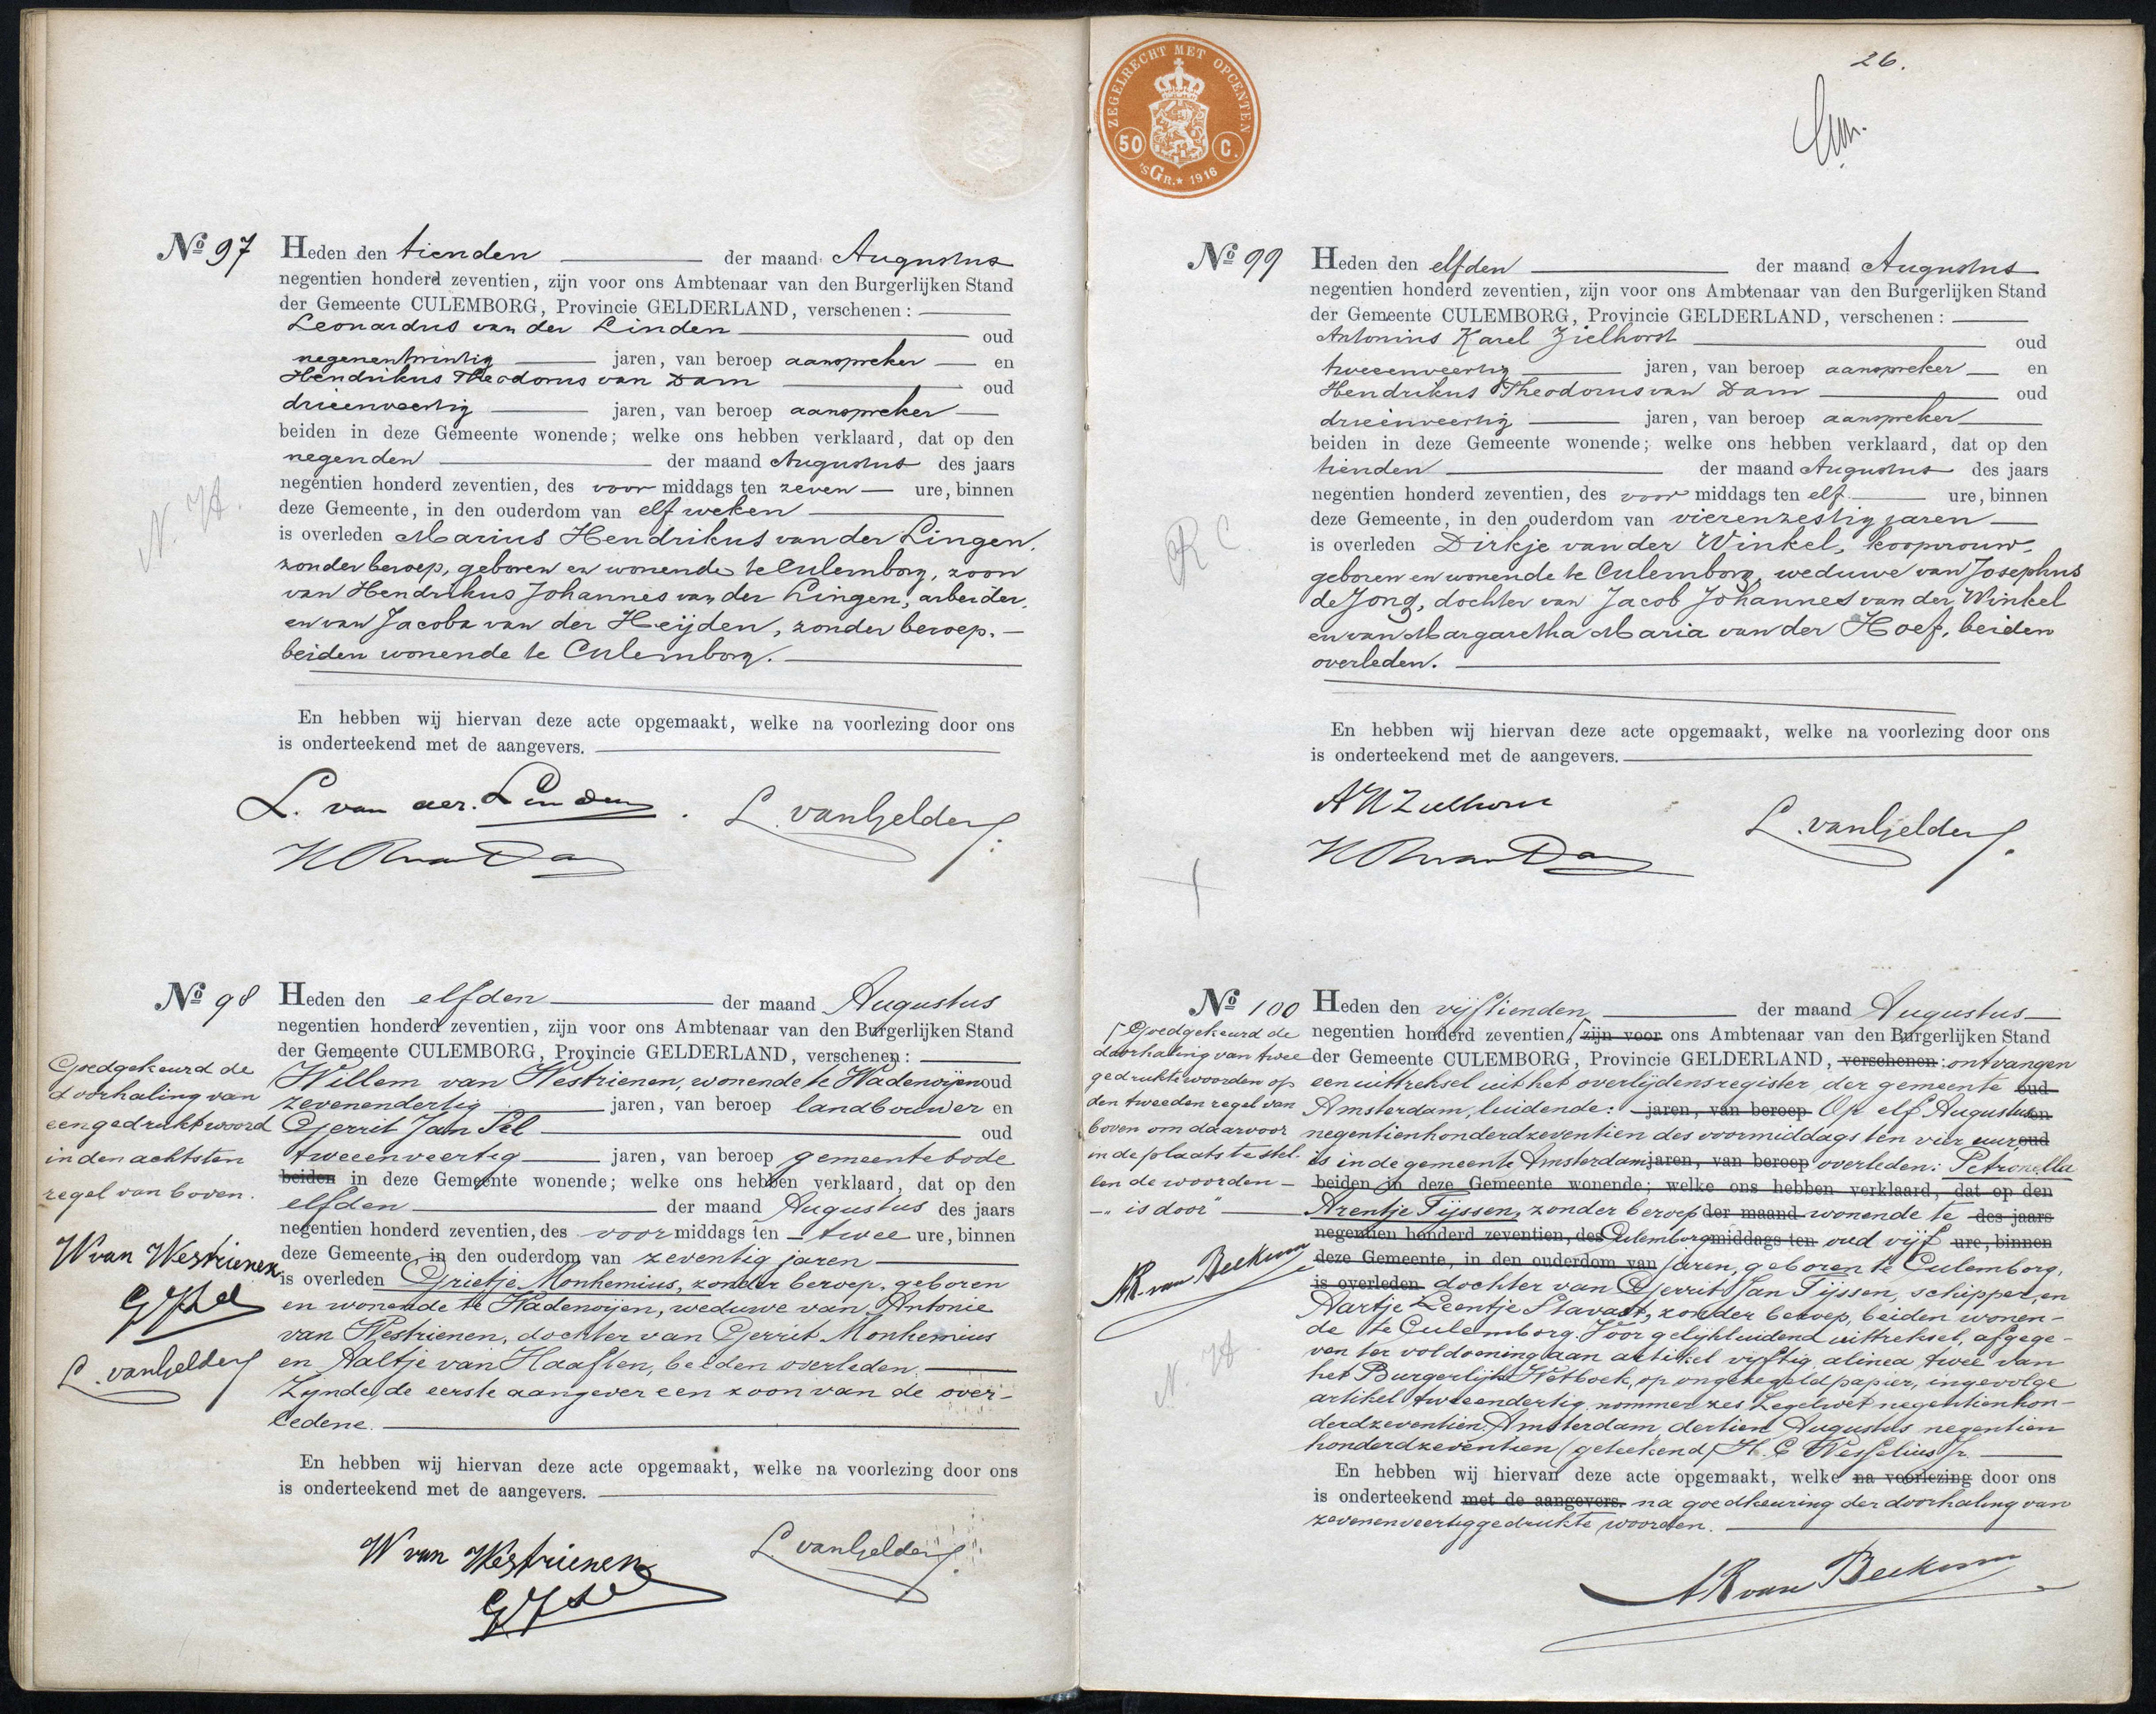 No 97 Heden den tienden der maand Augustus
negentien honderd zeventien, zijn voor ons Ambtenaar van den Burgerlijken Stand
der Gemeente CULEMBORG, Provincie GELDERLAND, verschenen:
Leonardus van der Linden oud
negenentwintig jaren, van beroep aanspreker en
Hendrikus Theodorus van Dam oud
drieenveertig jaren, van beroep aanspreker
beiden in deze Gemeente wonende; welke ons hebben verklaard, dat op den
negenden der maand Augustus des jaars
negentien honderd zeventien, des voor middags ten zeven ure, binnen
deze Gemeente, in den ouderdom van elf weken
is overleden Marius Hendrikus van der Lingen,
zonder beroep, geboren en wonende te Culemborg, zoon
van Hendrikus Johannes van der Lingen, arbeider,
en van Jacoba van der Heijden, zonder beroep,
beiden wonende te Culemborg.
N. H.
En hebben wij hiervan deze acte opgemaakt, welke na voorlezing door ons
is onderteekend met de aangevers.
L. van der Linden. L. van Gelder
H Th van Dam
No 98 Heden den elfden der maand Augustus
negentien honderd zeventien, zijn voor ons Ambtenaar van den Burgerlijken Stand
der Gemeente CULEMBORG, Provincie GELDERLAND, verschenen:
Willem van Westrienen, wonende te Wadenoijen oud
zevenendertig jaren, van beroep landbouwer en
Gerrit Jan Sel oud
tweeenveertig jaren, van beroep gemeentebode
beiden in deze Gemeente wonende; welke ons hebben verklaard, dat op den
elfden der maand Augustus des jaars
negentien honderd zeventien, des voor middags ten twee ure, binnen
deze Gemeente, in den ouderdom van zeventig jaren
is overleden Grietje Monhemius, zonder beroep, geboren
en wonende te Wadenoijen, weduwe van Antonie
van Westrienen, dochter van Gerrit Monhemius
en Aaltje van Haaften, beiden overleden.
Zijnde de eerste aangever een zoon van de over-
ledene.
Goedgekeurd de
doorhaling van
een gedrukt woord
in den achtsten
regel van boven.
W van Westrienen
G J Sel
L. van Gelder
En hebben wij hiervan deze acte opgemaakt, welke na voorlezing door ons
is onderteekend met de aangevers.
W van Westrienen L. van Gelder
G J Sel
26.
ZEGELRECHT MET OPCENTEN
50 C.
'sGR.* 1916
No 99 Heden den elfden der maand Augustus
negentien honderd zeventien, zijn voor ons Ambtenaar van den Burgerlijken Stand
der Gemeente CULEMBORG, Provincie GELDERLAND, verschenen:
Antonius Karel Zielhorst oud
tweeenveertig jaren, van beroep aanspreker en
Hendrikus Theodorus van Dam oud
drieënveertig jaren, van beroep aanspreker
beiden in deze Gemeente wonende; welke ons hebben verklaard, dat op den
tienden der maand Augustus des jaars
negentien honderd zeventien, des voor middags ten elf ure, binnen
deze Gemeente, in den ouderdom van vierenzestig jaren
is overleden Dirkje van der Winkel, koopvrouw,
geboren en wonende te Culemborg, weduwe van Josephus
de Jong, dochter van Jacob Johannes van der Winkel
en van Margaretha Maria van der Hoef, beiden
overleden.
R C
En hebben wij hiervan deze acte opgemaakt, welke na voorlezing door ons
is onderteekend met de aangevers.
A K Zielhorst L. van Gelder
H Th van Dam
No 100 Heden den vijftienden der maand Augustus
negentien honderd zeventien, zijn voor ons Ambtenaar van den Burgerlijken Stand
der Gemeente CULEMBORG, Provincie GELDERLAND, verschenen: ontvangen
een uittreksel uit het overlijdensregister der gemeente oud
Amsterdam, luidende: jaren, van beroep Op elf Augustus en
negentienhonderdzeventien des voormiddags ten vier uur oud
is in de gemeente Amsterdam jaren, van beroep overleden: Petronella
beiden in deze Gemeente wonende; welke ons hebben verklaard, dat op den
Arentje Tijssen, zonder beroep der maand wonende te des jaars
negentien honderd zeventien, des Culemborg middags ten oud vijf ure, binnen
deze Gemeente, in den ouderdom van jaren, geboren te Culemborg,
is overleden dochter van Gerrit Jan Tijssen, schipper, en
Aartje Leentje Stavast, zonder beroep, beiden wonen-
de te Culemborg. Voor gelijkluidend uittreksel, afgege-
ven ter voldoening aan artikel vijftig, alinea twee van
het Burgerlijk Wetboek, op ongezegeld papier, ingevolge
artikel tweeendertig nommer zes Zegelwet negentienhon-
derdzeventien. Amsterdam, dertien Augustus negentien
honderdzeventien (geteekend) H. C Wesselius Jr.
Goedgekeurd de
doorhaling van twee
gedrukte woorden op
den tweeden regel van
boven om daarvoor
in de plaats te stel-
len de woorden
"is door"
AR van Beekum
N. H.
En hebben wij hiervan deze acte opgemaakt, welke na voorlezing door ons
is onderteekend met de aangevers. na goedkeuring der doorhaling van
zevenenveertig gedrukte woorden.
AR van Beekum